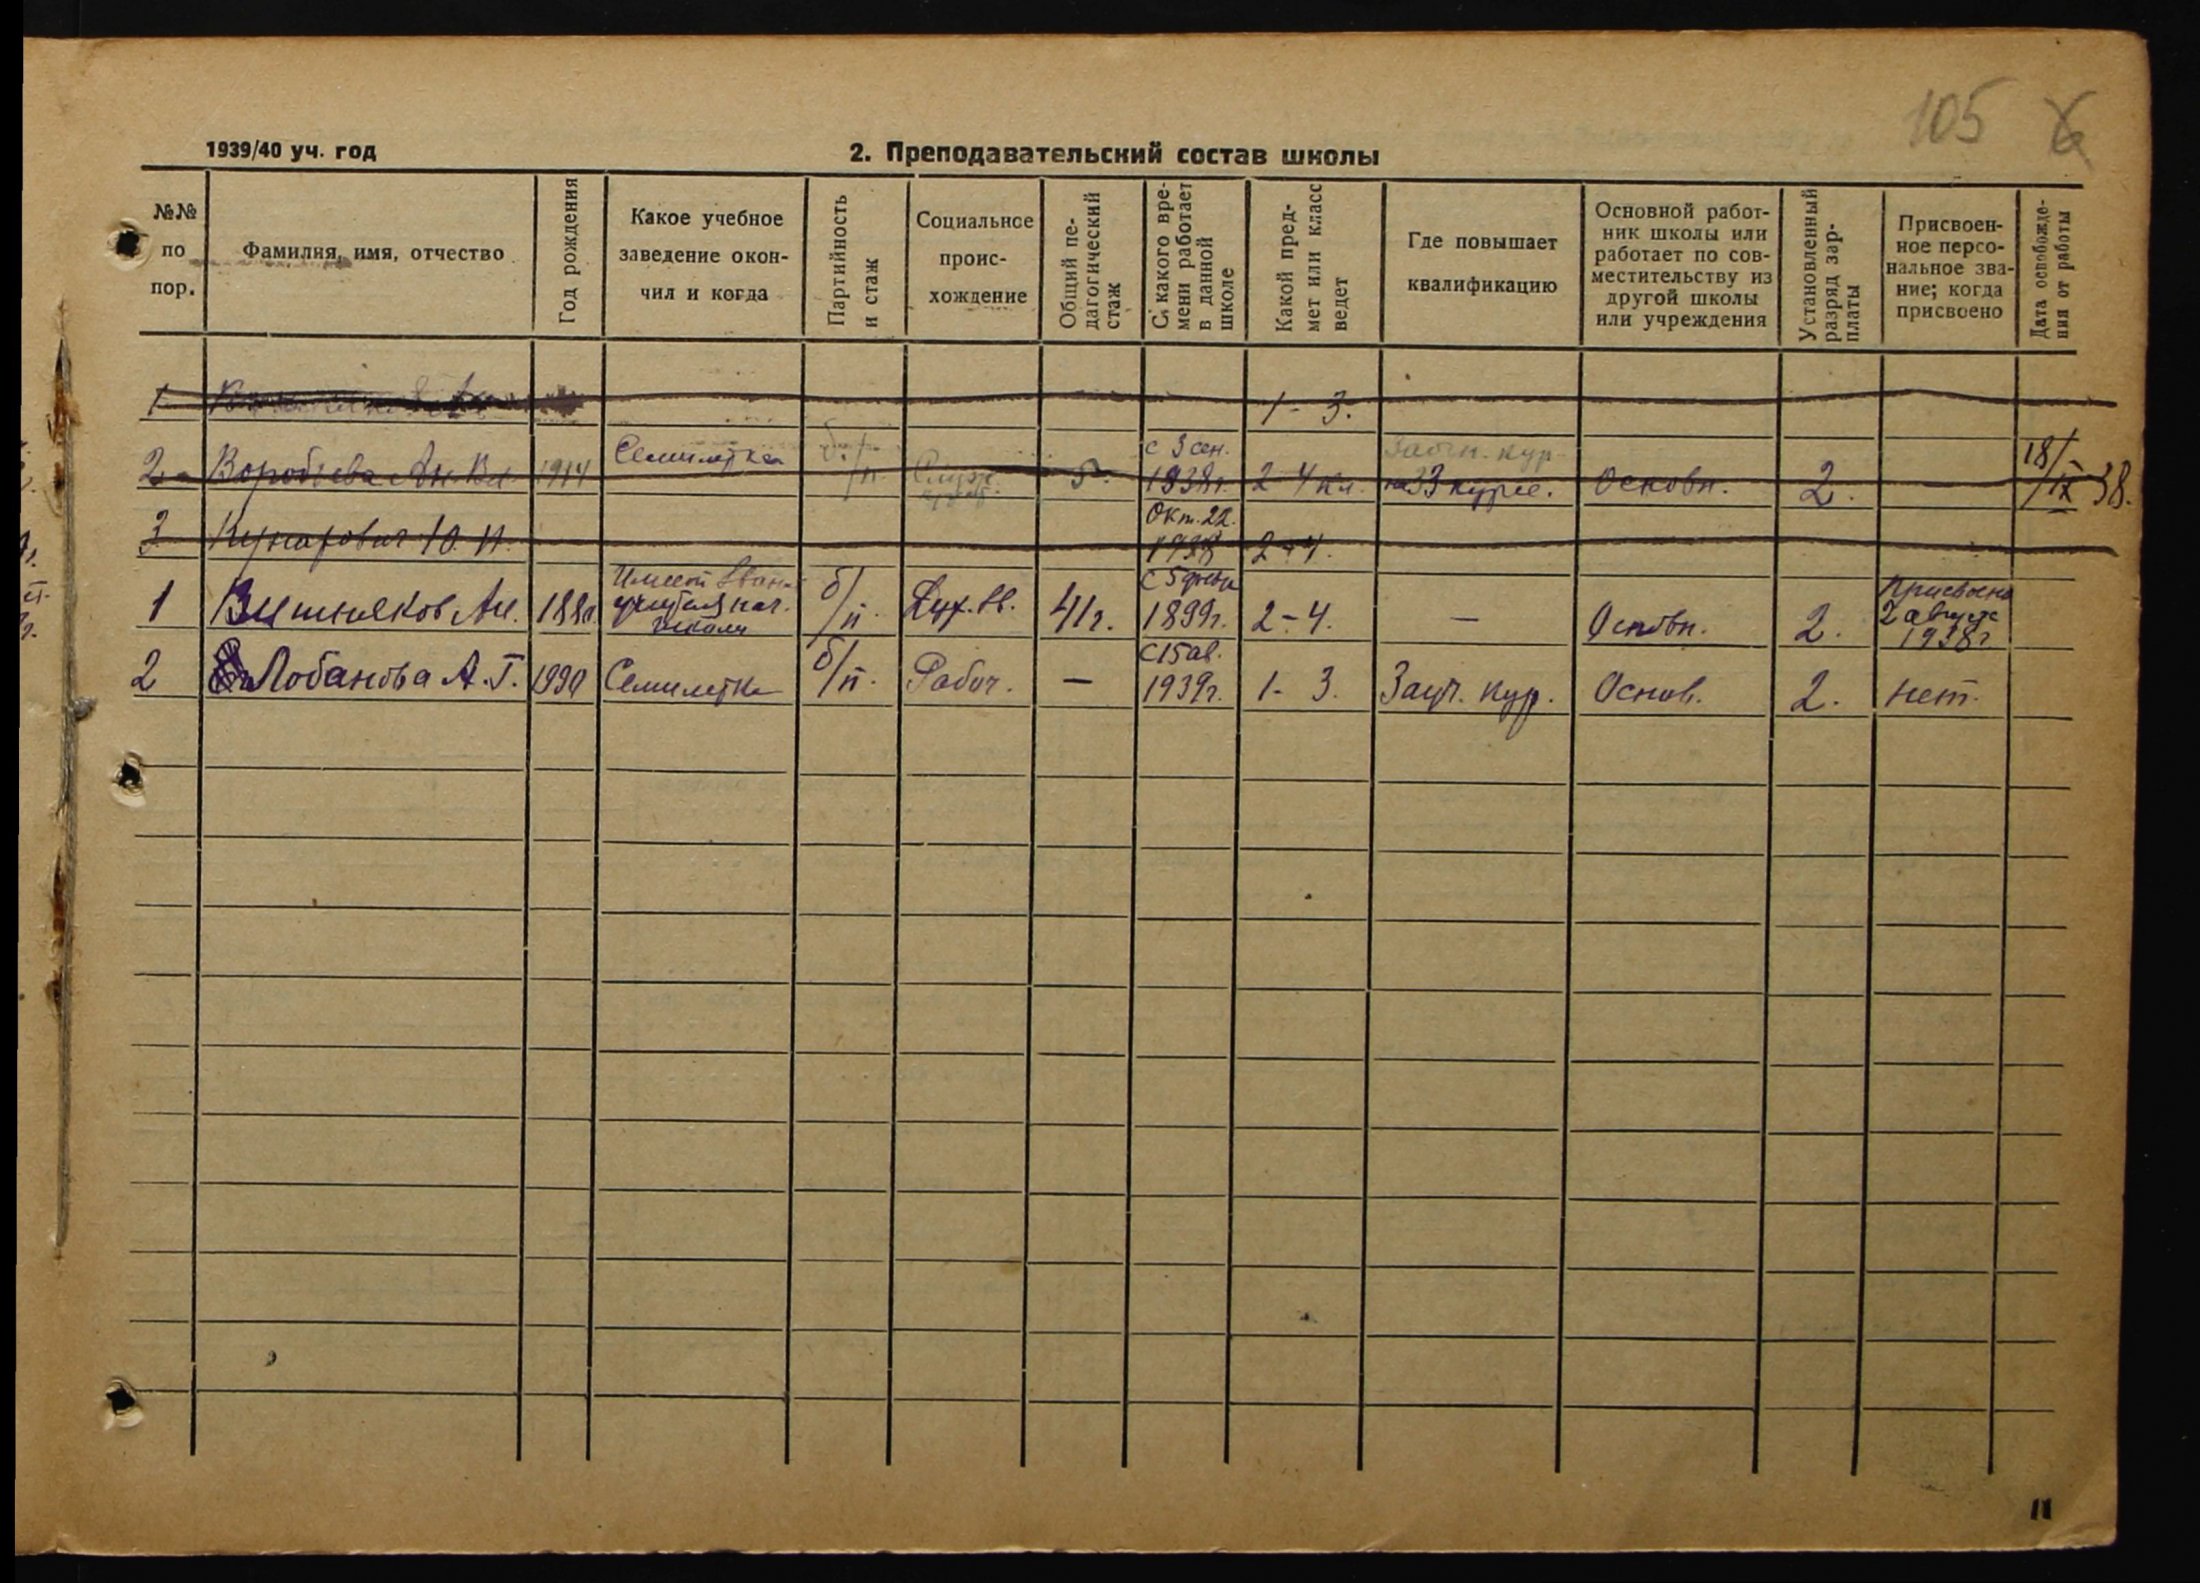 105
1939/40 уч. год
2. Преподавательский состав школы
№№ по пор.
Фамилия, имя, отчество
Год рождения
Какое учебное заведение окончил и когда
Партийность и стаж
Социальное происхождение
Общий педагогический стаж
С какого времени работает в данной школе
Какой предмет или класс ведет
Где повышает квалификацию
Основной работник школы или работает по совместительству из другой школы или учреждения
Установленный разряд зарплаты
Присвоенное персональное звание; когда присвоено
Дата освобождения от работы
1 1 - 3.
2 Воробьева Ан. Вл. 1914 Семилетка б/п. Служ. 5 с 3 сен. 1938г. 2 4 кл. Заочн. кур. на 3 курсе. Основн. 2. — 18/IX 38.
3 Ю. И. Окт. 22. 1938 2-4.
1 Вишняков Ан. учителя нач. школы б/п. Дух. зв. 41г. 1899г. 2-4. — Основн. 2. Присвоено 2 августа 1938г
2 Лобанова А. Г. Семилетка б/п. Рабоч. — с 15 ав. 1939г. 1- 3. Заоч. кур. Основ. 2. нет.
11